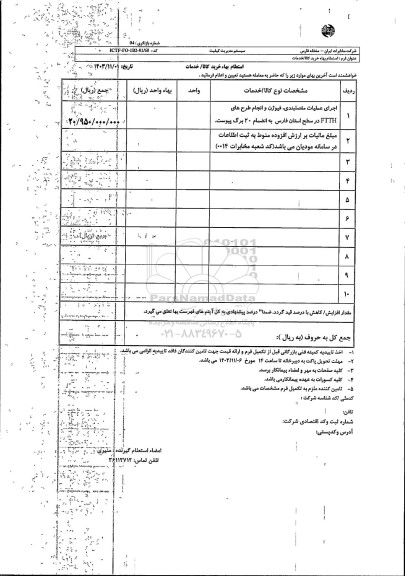 شماره بازنگری: 04
شرکت مخابرات ایران - منطقه فارس
سیستم مدیریت کیفیت
عنوان فرم: استعلام بهاء خرید کالا/خدمات
استعلام بهاء خرید کالا/ خدمات
تاریخ: ۱۴۰۳/۱۱/۰۱
خواهشمند است آخرین بهای موارد زیر را که حاضر به معامله هستید تعیین و اعلام فرمائید.
ردیف مشخصات نوع کالا/خدمات واحد بهاء واحد (ریال) جمع (ریال)
۱ اجرای عملیات مفصلبندی، فیوژن و انجام طرح های
FTTH در سطح استان فارس به انضمام ۲۰ برگ پیوست. ۲۰/۹۵۰/۰۰۰/۰۰۰
۲ مبلغ مالیات بر ارزش افزوده منوط به ثبت اطلاعات
در سامانه مودیان می باشد(کد شعبه مخابرات ۰۰۱۴)
۳
۴
۵
۶
۷ جمع (ریال)
۸
۹
۱۰
ParsNamadData
۰۲۱-۸۸۳۴۹۶۷۰-۵
مقدار افزایش/ کاهش با درصد قید گردد. ضمنا" درصد پیشنهادی به کل آیتم های فهرست بها تعلق می گیرد.
جمع کل به حروف (به ریال):
۱- اخذ تاییدیه کمیته فنی بازرگانی قبل از تکمیل فرم و ارائه قیمت جهت تامین کنندگان فاقد تاییدیه الزامی می باشد.
۲- مهلت تحویل پاکت به دبیرخانه تا ساعت ۱۴ مورخ ۱۴۰۳/۱۱/۰۶ می باشد.
۳- کلیه صفحات به مهر و امضاء پیمانکار برسد.
۴- کلیه کسورات به عهده پیمانکار می باشد.
۵- تامین کننده ملزم به تکمیل فرم مشخصات می باشد.
کدملی /کد شناسه شرکت:
تلفن:
شماره ثبت وکد اقتصادی شرکت:
آدرس وکدپستی:
امضاء استعلام گیرنده: منیری
تلفن تماس: ۳۶۱۱۳۷۱۲